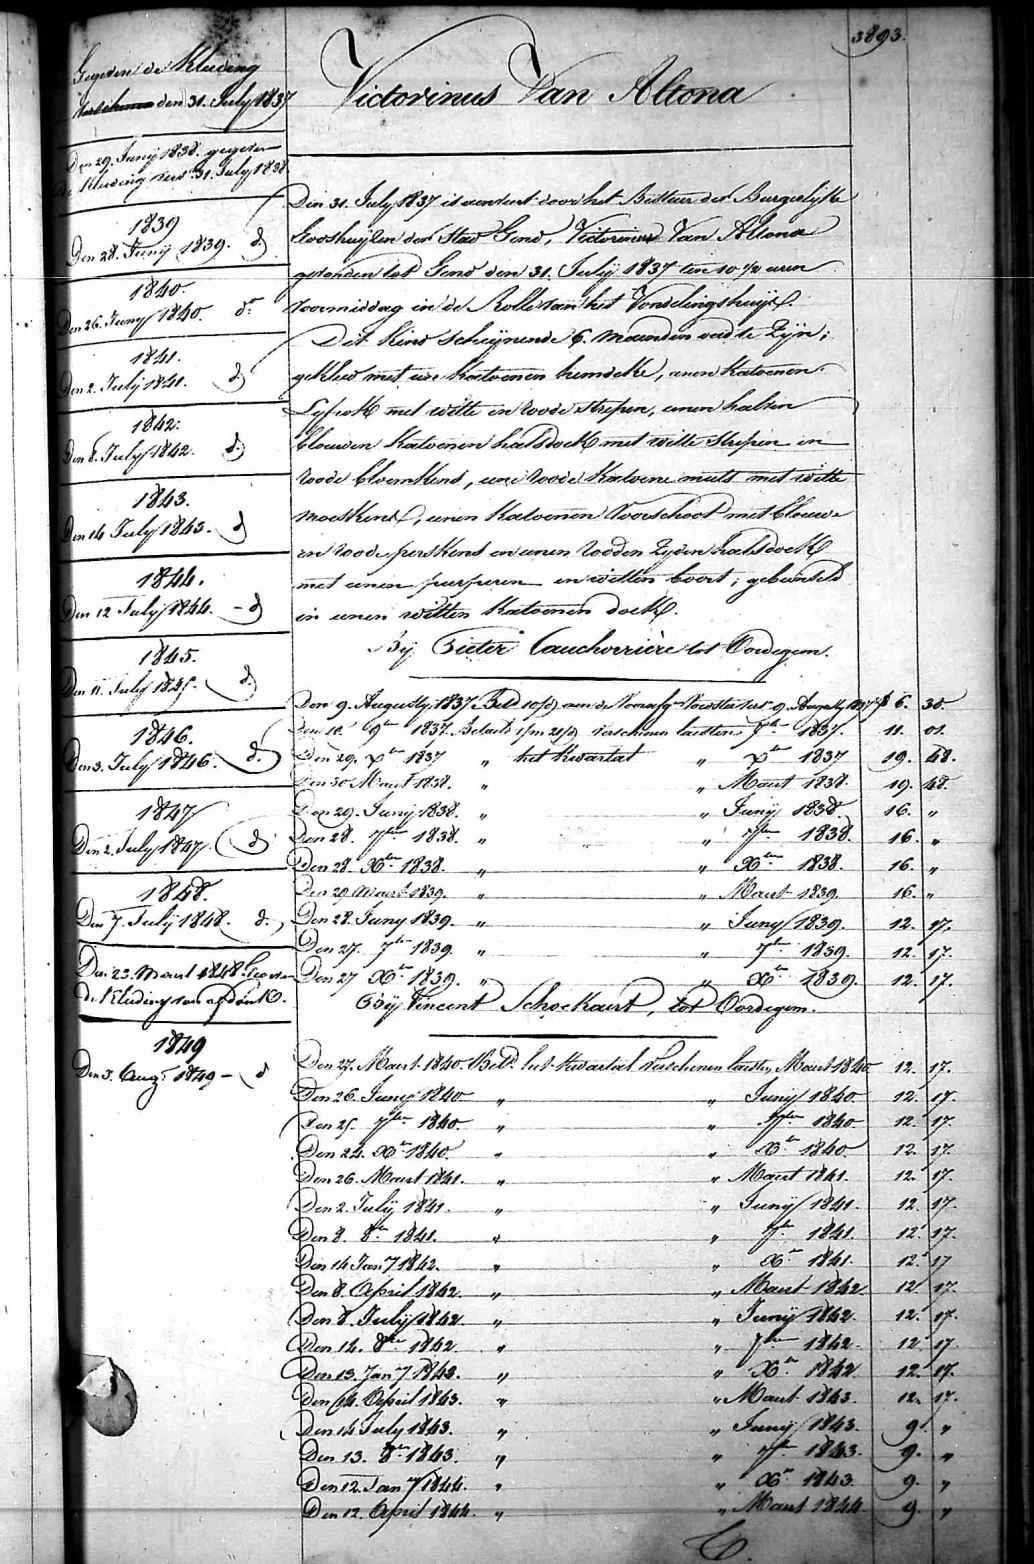 3893.
Victorinus Van Altona
Gegeven de Kleeding
den 31. July 1837
Den 29. Junij 1838. gegeven
de Kleeding vers. 31. July 1838
1839
Den 28. Junij 1839. d.
1840.
Den 26. Juny 1840. do
1841.
Den 2. Julij 1841. d
1842.
Den 8. July 1842. d.
1843.
Den 14 July 1843. d
1844.
Den 12 July 1844. – d
1845.
Den 11. July 1845. d.
1846.
Den 3. July 1846. d.
1847
Den 2. July 1847. d
1848.
Den 7. Julij 1848. d.
Den 23. Maart 1848
de Kleeding van
1849
Den 3. Augt. 1849 – d
Den 31. July 1837 is aenveert door het Bestuer der Burgerlyke
Godshuyzen der Stad Gend, Victorinus Van Altona
gevonden tot Gend den 31. Julij 1837 ten 10 ½ uren
voormiddag in de Rolle van het Vondelingshuys.
Dit kind scheijnende 6. maenden oud te zijn;
gekleed met een katoenen hemdeke, eenen katoenen
Lyfrok met witte en roode strepen, eenen halven
blouwen katoenen halsdoek met witte strepen en
roode bloemkens, eene roode katoene muts met witte
moeskens, eenen katoenen voorschoot met blouwe
en roode perskens en eenen rooden zyden halsdoek
met eenen purperen en witten boort; gebusseld
in eenen witten katoenen doek.
Bij Pieter Cauchorrière tot Oordegem.
Den 9. Augusty 1837 Beld 10/d aen de Voorsz Voedster tot 9. Augusty 1837 f 6. 30.
Den 10. 9er 1837. Betaeld 1/m 21/d verschenen laetsten 7ber 1837. 11. 01.
Den 29. Xer 1837 " het kwartael " Xer 1837 19. 48.
Den 30 Maart 1838. " " Maart 1838. 19. 48.
Den 29. Junij 1838. " " Junij 1838. 16. "
Den 28. 7ber 1838. " " 7ber 1838. 16. "
Den 28. Xber 1838. " " Xber 1838. 16. "
Den 29 Maart 1839. " " Maart 1839. 16. "
Den 28. Juny 1839. " " Juny 1839. 12. 17.
Den 27. 7ber 1839. " " 7ber 1839. 12. 17.
Den 27 Xber 1839. " " Xber 1839. 12. 17.
Bij Vincent Schockaert, tot Oordegem.
Den 27. Maart 1840 Beld. het kwartael verschenen laetsten Maart 1840 12. 17.
Den 26. Juny 1840 " " Junij 1840 12. 17.
Den 25. 7ber 1840. " " 7ber 1840 12. 17.
Den 24. Xber 1840. " " Xber 1840. 12. 17.
Den 26. Maart 1841. " " Maart 1841. 12. 17.
Den 2. Julij 1841. " " Junij 1841. 12. 17.
Den 8. 8ber 1841. " " 7ber 1841. 12. 17.
Den 14 Jany 1842. " " Xber 1841. 12. 17
Den 8. April 1842. " " Maart 1842. 12. 17.
Den 8. Julij 1842. " " Junij 1842. 12. 17.
Den 14. 8ber 1842. " " 7ber 1842. 12 17.
Den 13. Jany 1843. " " Xber 1842. 12. 17.
Den 14. April 1843. " " Maart 1843. 12. 17.
Den 14 July 1843. " " Junij 1843. 9. "
Den 13. 8ber 1843. " " 7ber 1843. 9. "
Den 12. Jany 1844. " " Xber 1843. 9. "
Den 12. April 1844. " " Maart 1844 9. "